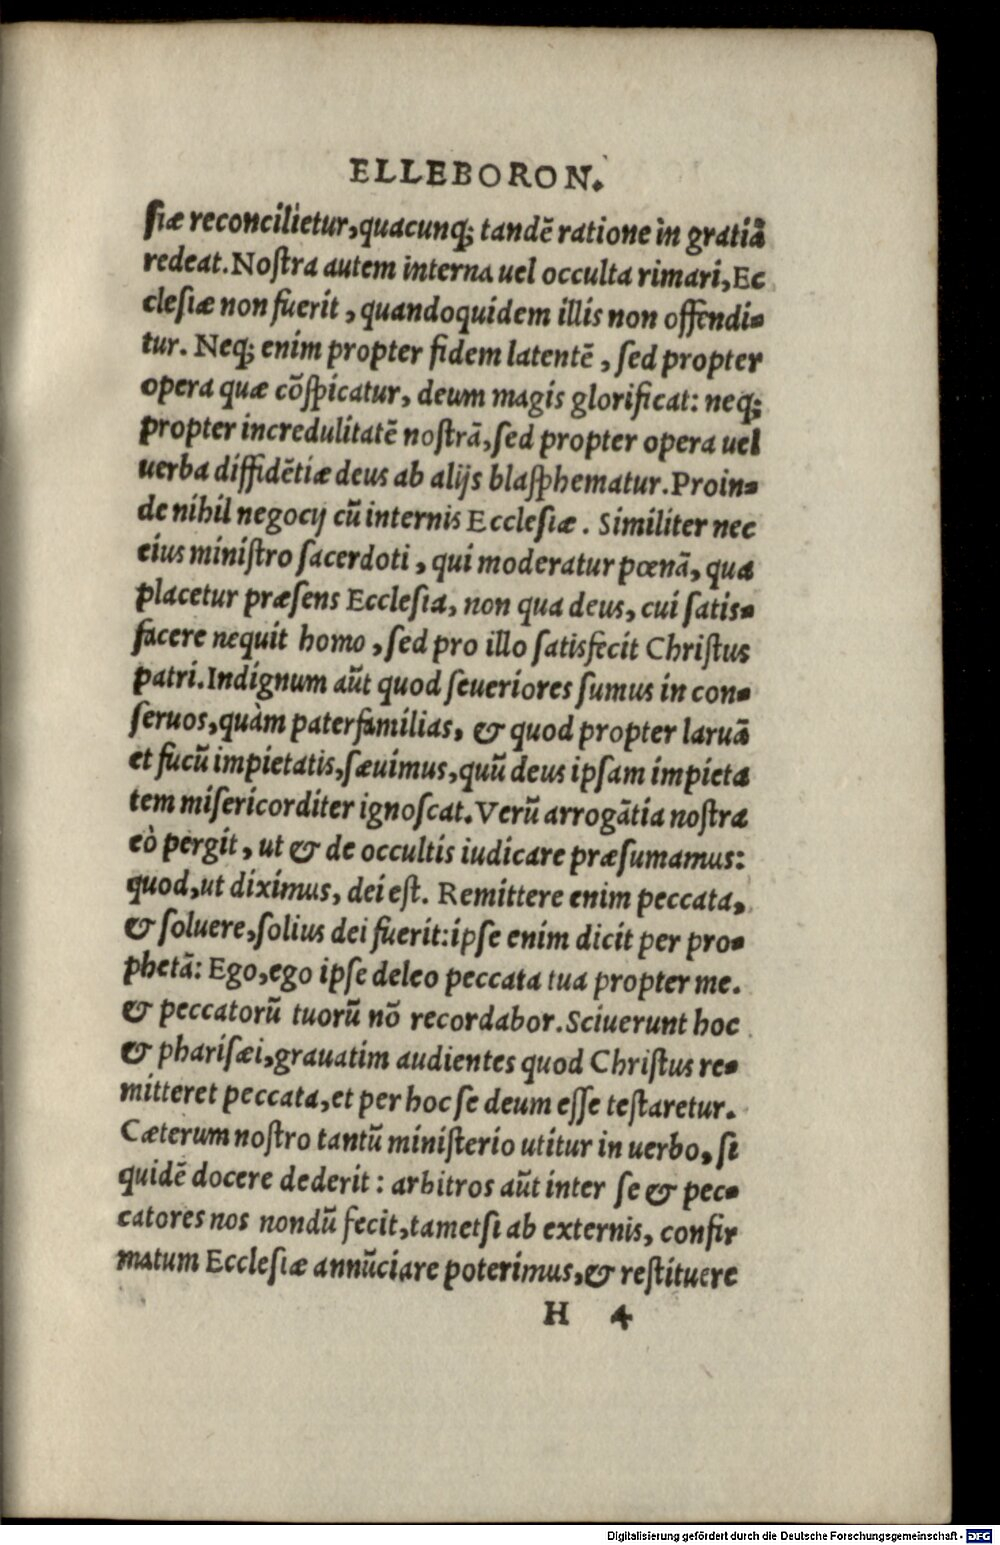 ELLEBORON.
ſiæ reconcilietur, quacunq; tandē ratione in gratiā
redeat. Noſtra autem interna uel occulta rimari, Ec
cleſiæ non fuerit, quandoquidem illis non offendi-
tur. Neq; enim propter fidem latentē, ſed propter
opera quæ cōſpicatur, deum magis glorificat: neq;
propter incredulitatē noſtrā, ſed propter opera uel
uerba diffidētiæ deus ab alijs blaſphematur. Proin-
de nihil negocij cū internis Eccleſiæ. Similiter nec
eius miniſtro ſacerdoti, qui moderatur pœnā, qua
placetur præſens Eccleſia, non qua deus, cui ſatis-
facere nequit homo, ſed pro illo ſatisfecit Chriſtus
patri. Indignum aūt quod ſeueriores ſumus in con-
ſeruos, quàm paterfamilias, & quod propter laruā
et fucū impietatis, ſæuimus, quū deus ipſam impieta
tem miſericorditer ignoſcat. Verū arrogātia noſtra
eò pergit, ut & de occultis iudicare præſumamus:
quod, ut diximus, dei eſt. Remittere enim peccata,
& ſoluere, ſolius dei fuerit: ipſe enim dicit per pro-
phetā: Ego, ego ipſe deleo peccata tua propter me.
& peccatorū tuorū nō recordabor. Sciuerunt hoc
& phariſæi, grauatim audientes quod Chriſtus re-
mitteret peccata, et per hoc ſe deum eſſe teſtaretur.
Cæterum noſtro tantū miniſterio utitur in uerbo, ſi
quidē docere dederit: arbitros aūt inter ſe & pec-
catores nos nondū fecit, tametſi ab externis, confir
matum Eccleſiæ annūciare poterimus, & reſtituere
H 4
Digitalisierung gefördert durch die Deutsche Forschungsgemeinschaft - DFG